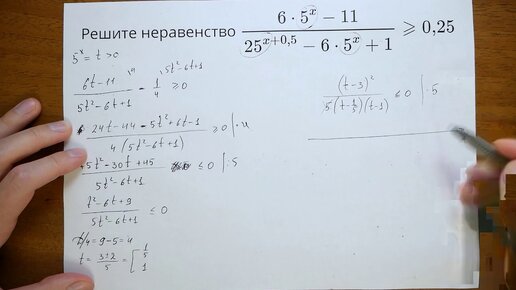 Решите неравенство (6 · 5^x − 11) / (25^(x+0,5) − 6 · 5^x + 1) ⩾ 0,25
5^x = t > 0
(6t − 11)^(\4) / (5t² − 6t + 1) − 1/4^(\5t² − 6t + 1) ≥ 0
(24t − 44 − 5t² + 6t − 1) / (4(5t² − 6t + 1)) ≥ 0 | · 4
(5t² − 30t + 45) / (5t² − 6t + 1) ≤ 0 | : 5
(t² − 6t + 9) / (5t² − 6t + 1) ≤ 0
D/4 = 9 − 5 = 4
t = (3 ± 2) / 5 = [ 1/5 1
(t − 3)² / (5(t − 1/5)(t − 1)) ≤ 0 | · 5